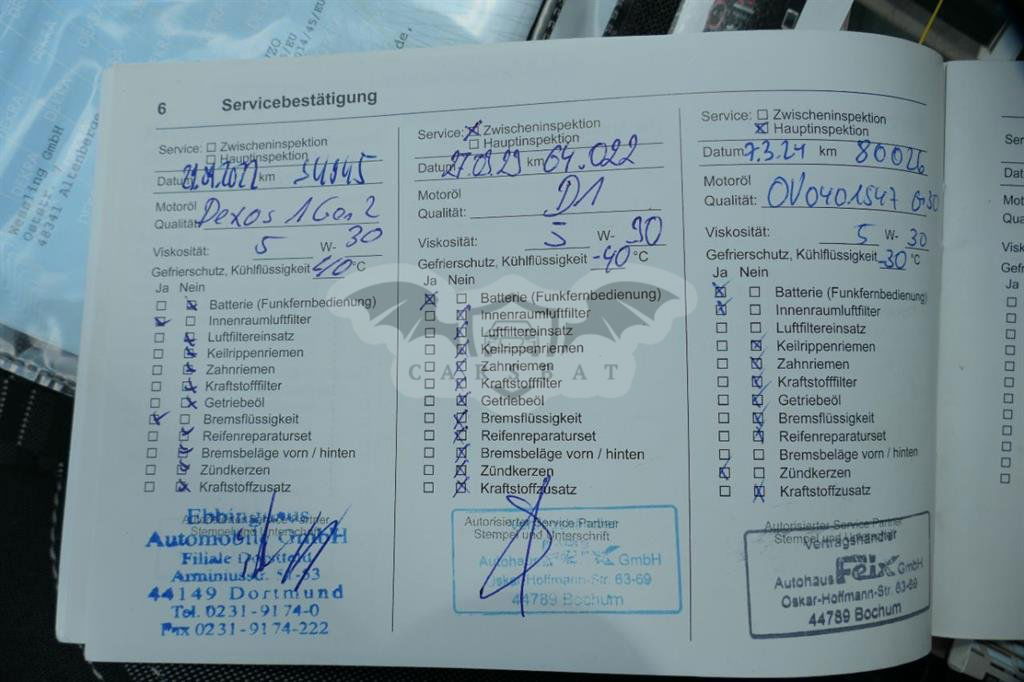 6 Servicebestätigung
Service: Zwischeninspektion
Hauptinspektion
Datum km
Motoröl
Qualität: Dexos 1 Gen 2
Viskosität: 5 W- 30
Gefrierschutz, Kühlflüssigkeit -40 °C
Ja Nein
Batterie (Funkfernbedienung)
Innenraumluftfilter
Luftfiltereinsatz
Keilrippenriemen
Zahnriemen
Kraftstofffilter
Getriebeöl
Bremsflüssigkeit
Reifenreparaturset
Bremsbeläge vorn / hinten
Zündkerzen
Kraftstoffzusatz
Stempel und Unterschrift
Ebbinghaus
Automobile GmbH
Filiale
Arminiusstr.
44149 Dortmund
Tel. 0231-9174-0
Fax 0231-9174-222
Service: Zwischeninspektion
Hauptinspektion
Datum km 64.022
Motoröl
Qualität: D1
Viskosität: 5 W- 30
Gefrierschutz, Kühlflüssigkeit -40 °C
Ja Nein
Batterie (Funkfernbedienung)
Innenraumluftfilter
Luftfiltereinsatz
Keilrippenriemen
Zahnriemen
Kraftstofffilter
Getriebeöl
Bremsflüssigkeit
Reifenreparaturset
Bremsbeläge vorn / hinten
Zündkerzen
Kraftstoffzusatz
Autorisierter Service Partner
Stempel und Unterschrift
Autohaus Feix GmbH
Oskar-Hoffmann-Str. 63-69
44789 Bochum
Service: Zwischeninspektion
Hauptinspektion
Datum 7.3.24 km 80026
Motoröl
Qualität: OV0401547 G30
Viskosität: 5 W- 30
Gefrierschutz, Kühlflüssigkeit -30 °C
Ja Nein
Batterie (Funkfernbedienung)
Innenraumluftfilter
Luftfiltereinsatz
Keilrippenriemen
Zahnriemen
Kraftstofffilter
Getriebeöl
Bremsflüssigkeit
Reifenreparaturset
Bremsbeläge vorn / hinten
Zündkerzen
Kraftstoffzusatz
Autorisierter Service Partner
Stempel und Unterschrift
Vertragshändler
Autohaus Feix GmbH
Oskar-Hoffmann-Str. 63-69
44789 Bochum
CARSBAT
Wessling GmbH
48341 Altenberge
DEKRA